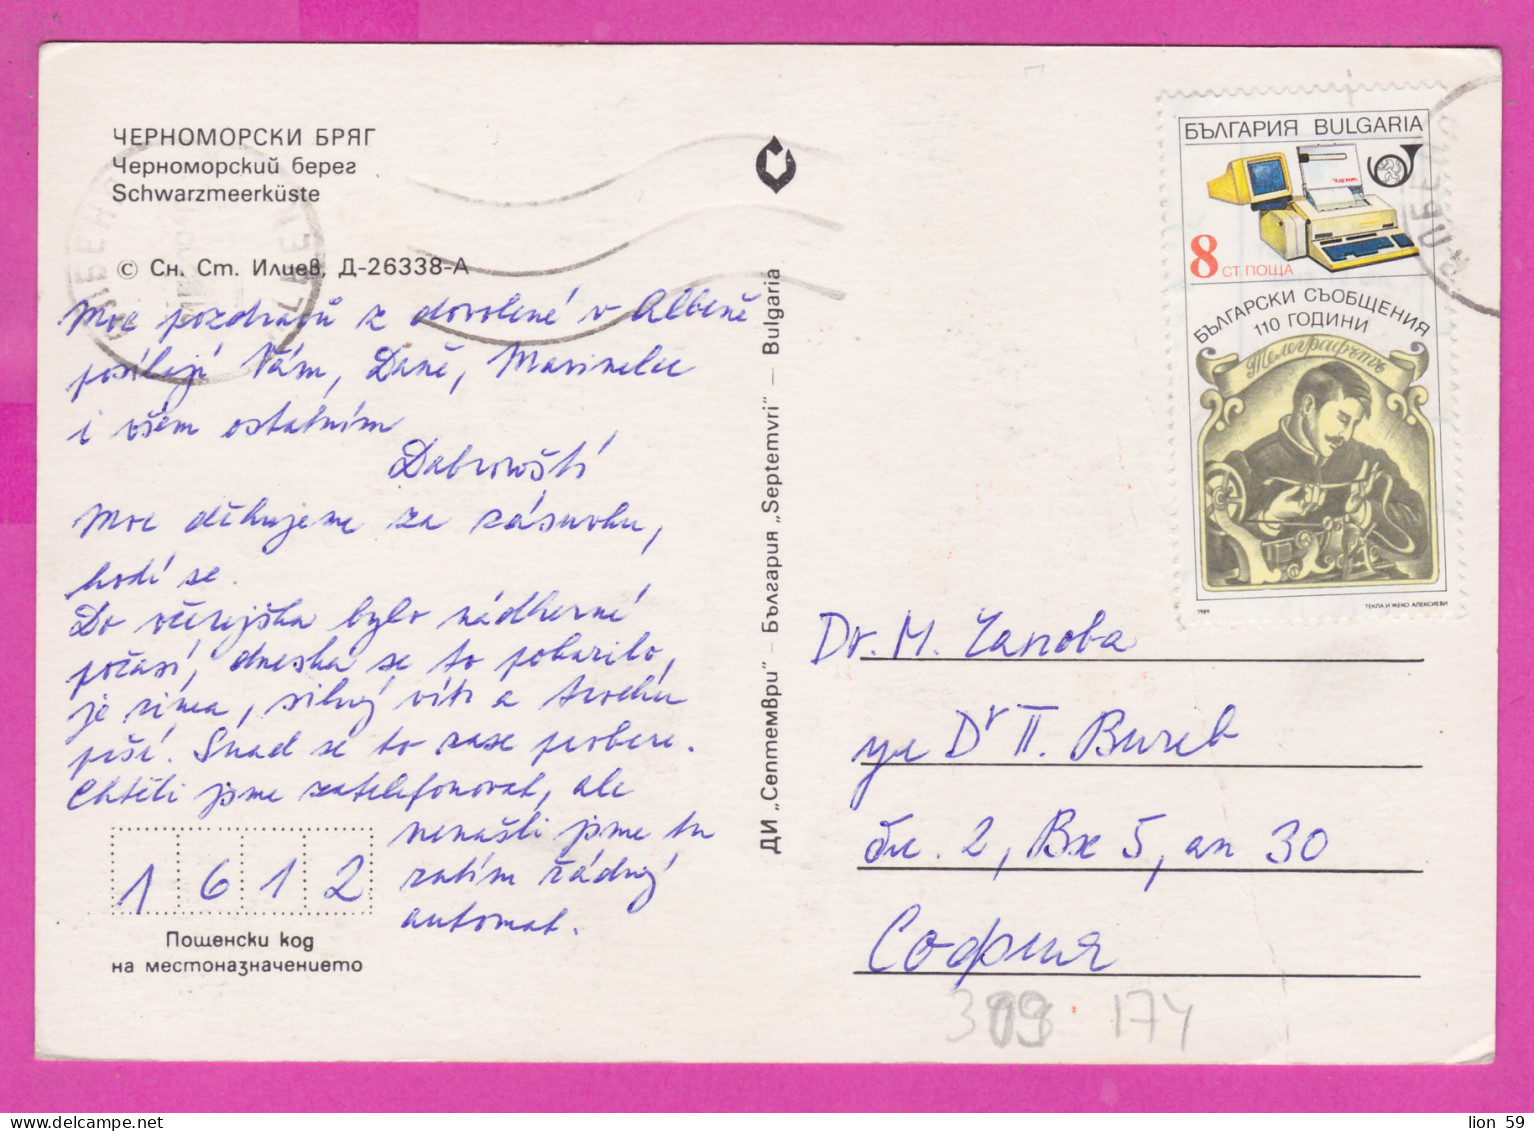 ЧЕРНОМОРСКИ БРЯГ
Черноморский берег
Schwarzmeerküste
© Сн. Ст. Илиев, Д-26338-А
Moc pozdravů z dovolené v Albeně
posílají Vám, Daně, Marinelce
i všem ostatním
Dabrowští
Moc děkujeme za zásuvku,
hodí se.
Do včerejška bylo nádherné
počasí, dneska se to pokazilo,
je zima, silný vítr a trochu
prší. Snad se to zase probere.
Chtěli jsme zatelefonovat, ale
nenašli jsme tu
zatím žádný
automat.
1 6 1 2
Пощенски код
на местоназначението
ДИ „Септември“ – България „Septemvri“ – Bulgaria
БЪЛГАРИЯ BULGARIA
8 СТ. ПОЩА
БЪЛГАРСКИ СЪОБЩЕНИЯ
110 ГОДИНИ
Телеграфътъ
1989 ТЕКЛА И ЖЕКО АЛЕКСИЕВИ
Dr. М. Чапова
ул Dr П. Вичев
бл. 2, Вх 5, ап 30
София
174
lion 59